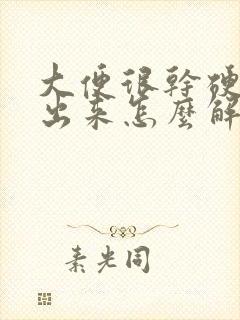 大便很幹硬
出来怎麼解
素光同